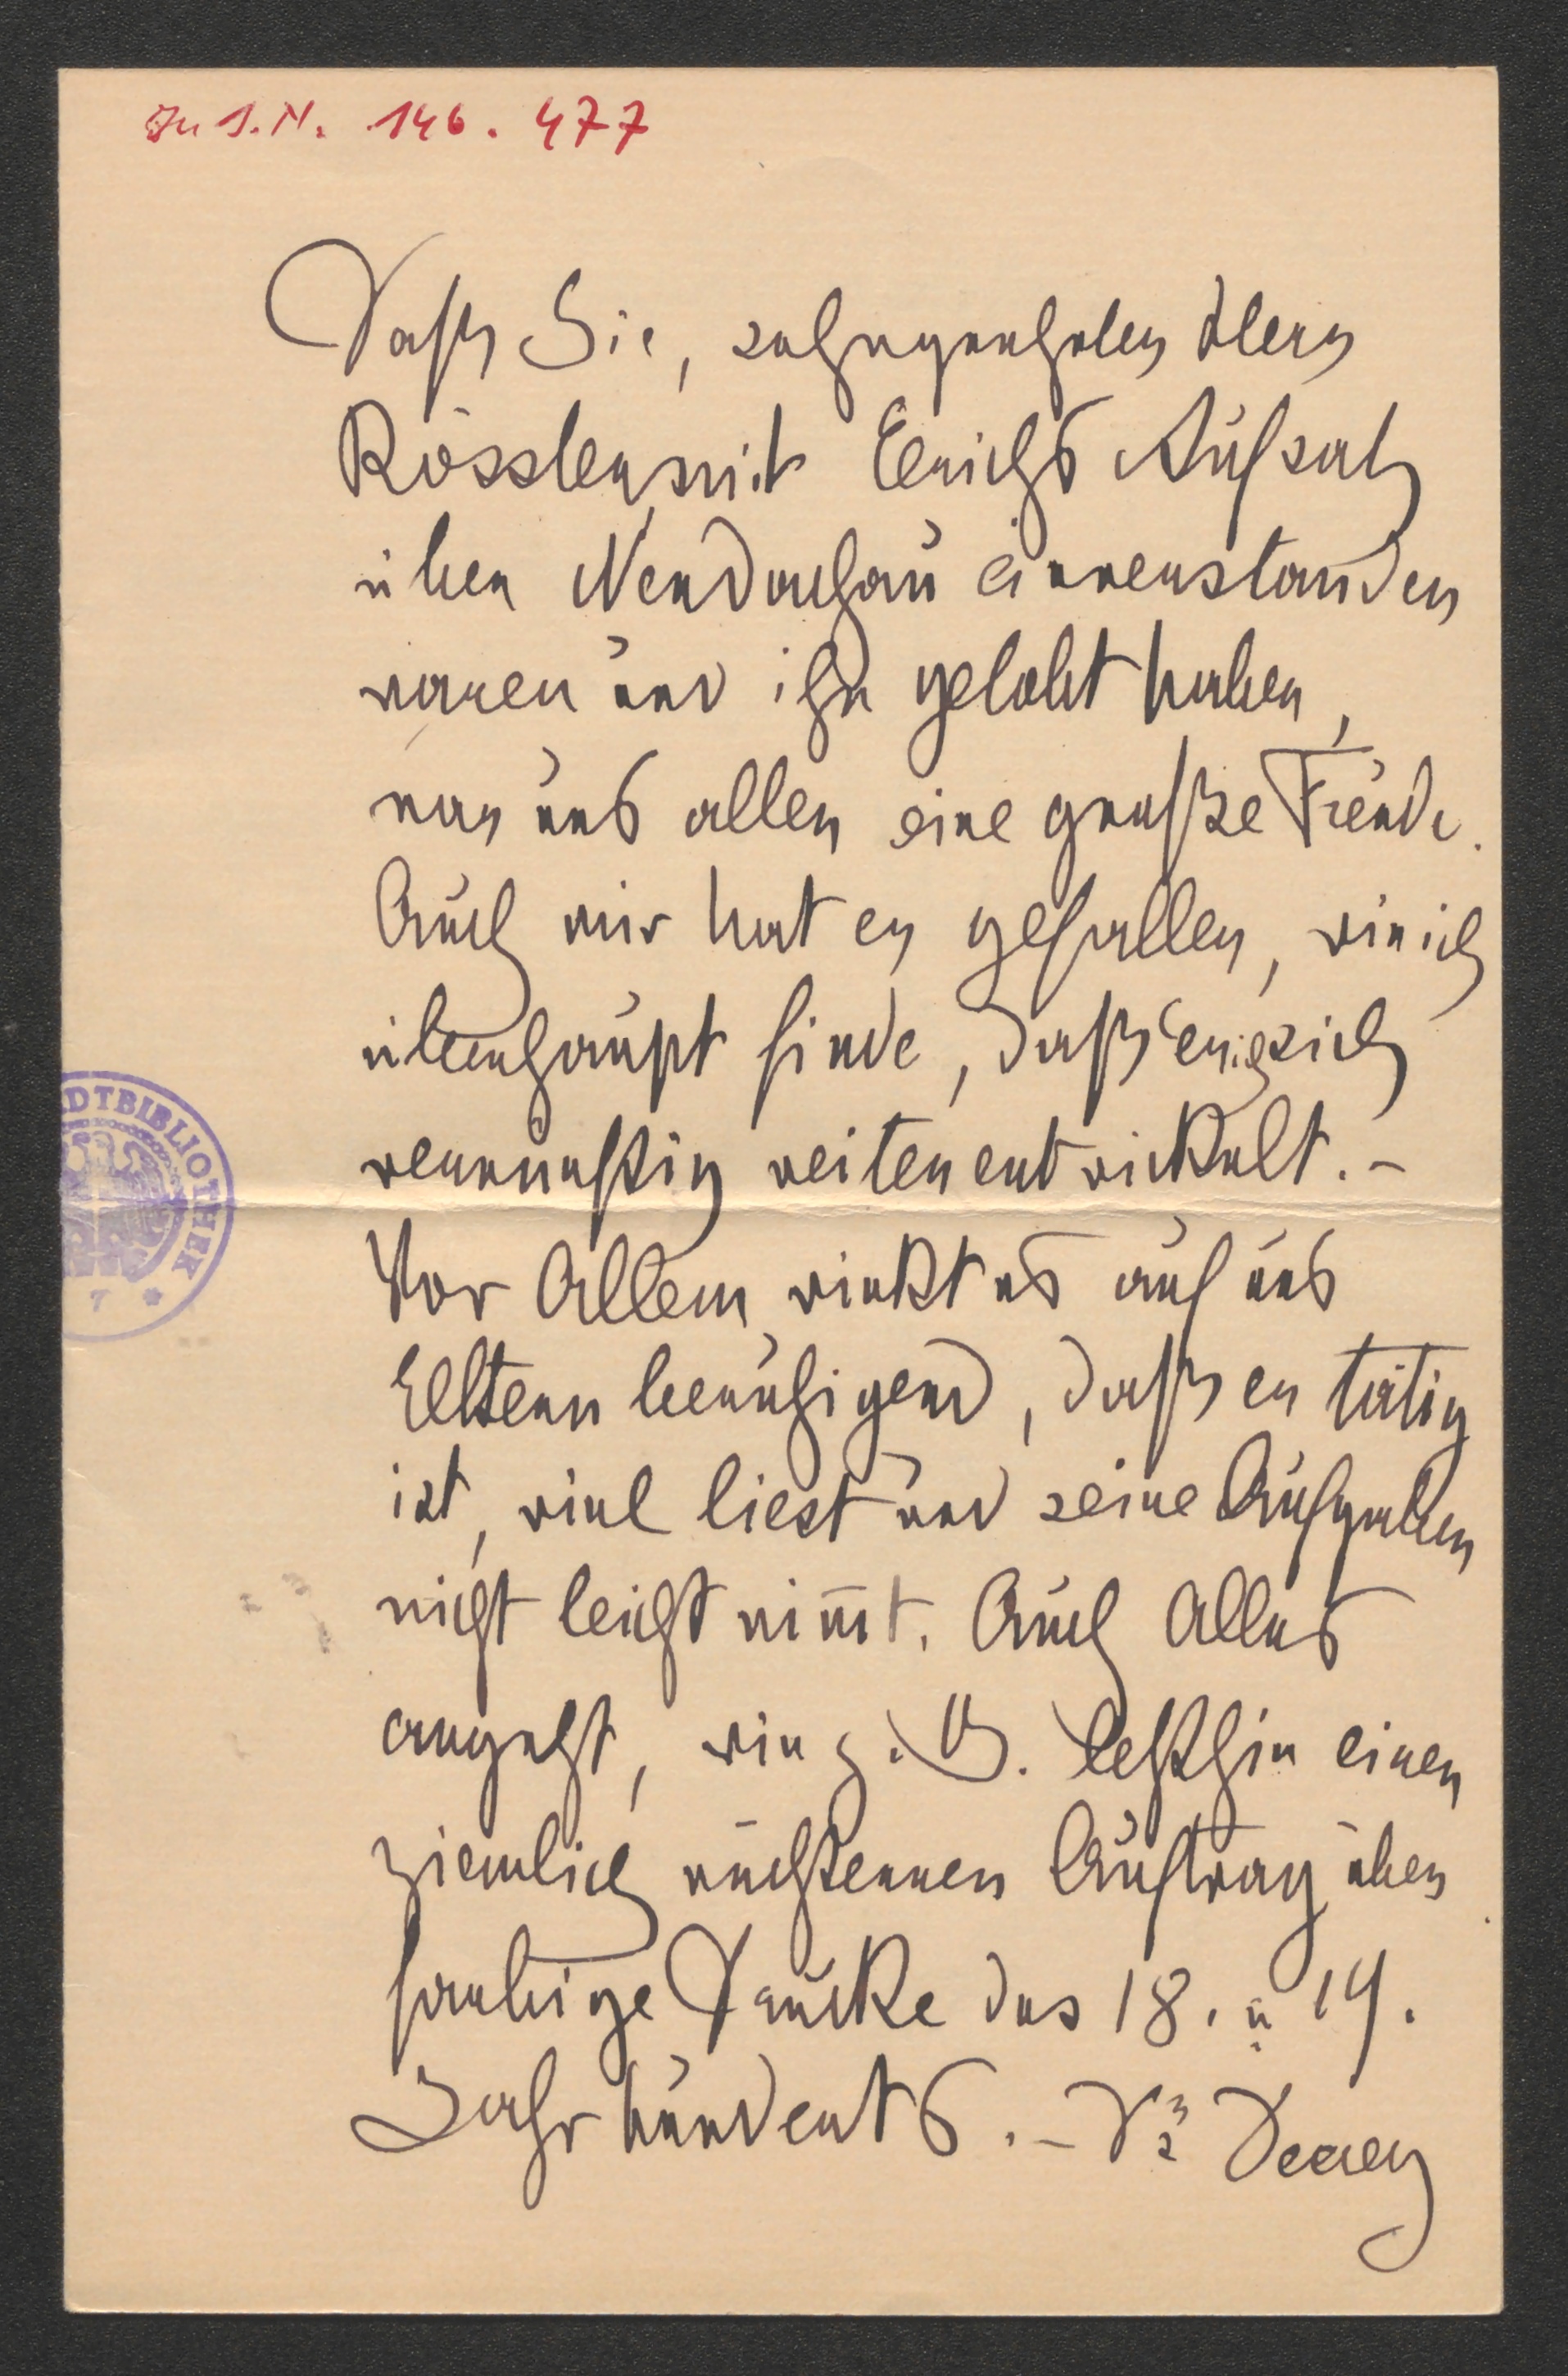 Zu I.N. 146.477
Dass Sie, sehrgeehrter Herr
Rössler, mit Erichs Aufsatz
über Neudachau einverstanden
waren und ihn gelobt haben,
war uns allen eine große Freude.
Auch mir hat er gefallen, wie ich
überhaupt finde, daß Erich sich
vernünftig weiterentwickelt. –
Vor Allem wirkt es auf uns
Eltern beruhigend, daß er tätig
ist, viel liest und seine Aufgaben
nicht leicht nim̅t. Auch Alles
angeht, wie z. B. letzthin einen
ziemlich nüchternen Auftrag über
farbige Drucke des 18. u 19.
Jahrhunderts. –
STADTBIBLIOTHEK
7